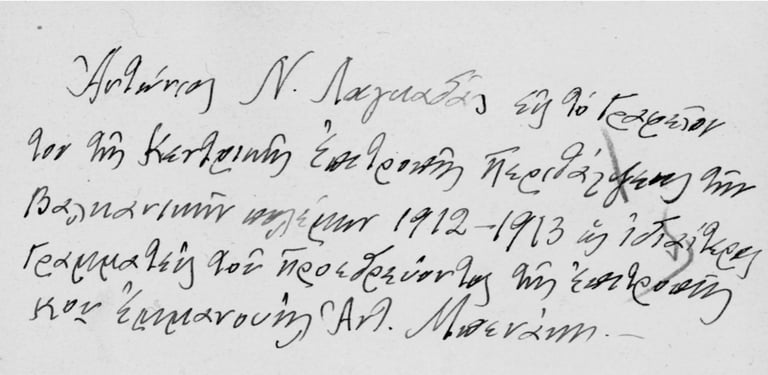 Ἀντώνιος Ν. Λαγκαδᾶς εἰς τὸ Γραφεῖον
του τῆς Κεντρικῆς Ἐπιτροπῆς Περιθάλψεως τῶν
Βαλκανικῶν πολέμων 1912-1913 ὡς ἰδιαίτερος
Γραμματεὺς τοῦ προεδρεύοντος τῆς ἐπιτροπῆς
κου Ἐμμανουὴλ Ἀντ. Μπενάκη. -